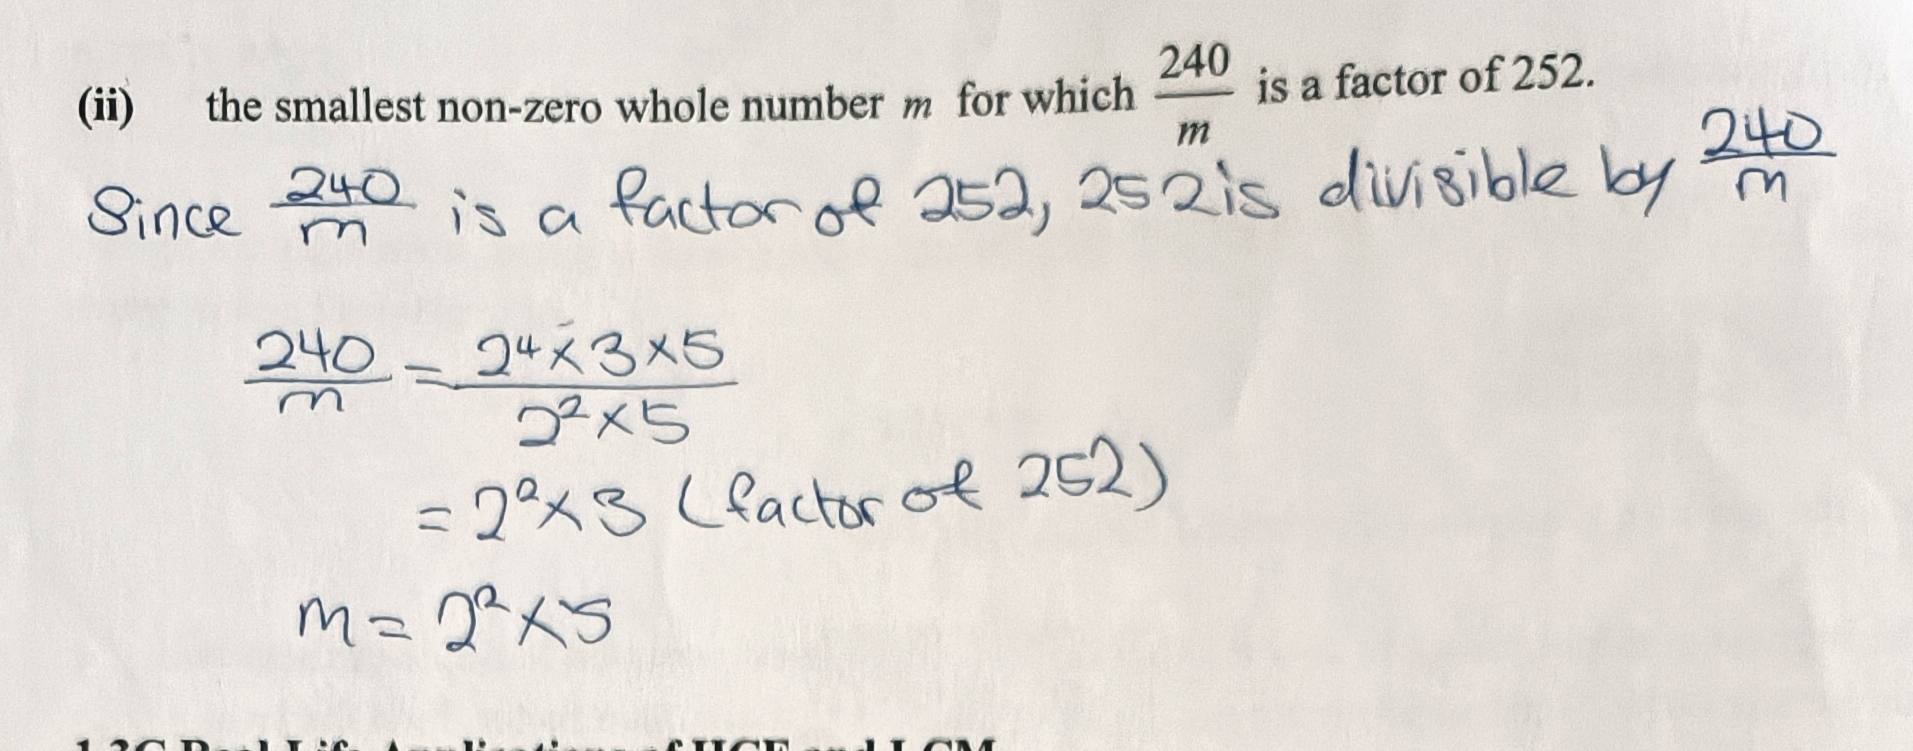 (ii) the smallest non-zero whole number m for which 240/m is a factor of 252.
Since 240/m is a factor of 252, 252 is divisible by 240/m
240/m = 2⁴×3×5/2²×5
= 2²×3 (factor of 252)
m = 2²×5